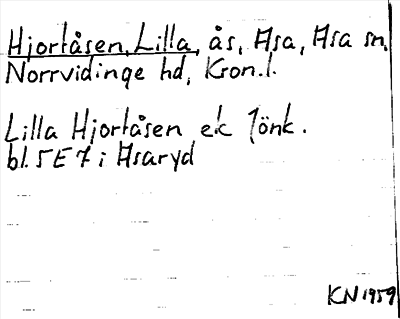 Hjortåsen, Lilla, ås, Asa, Asa sn,
Norrvidinge hd, Kron.l.
Lilla Hjortåsen ek Jönk.
bl. 5E7 i Asaryd
KN 1959